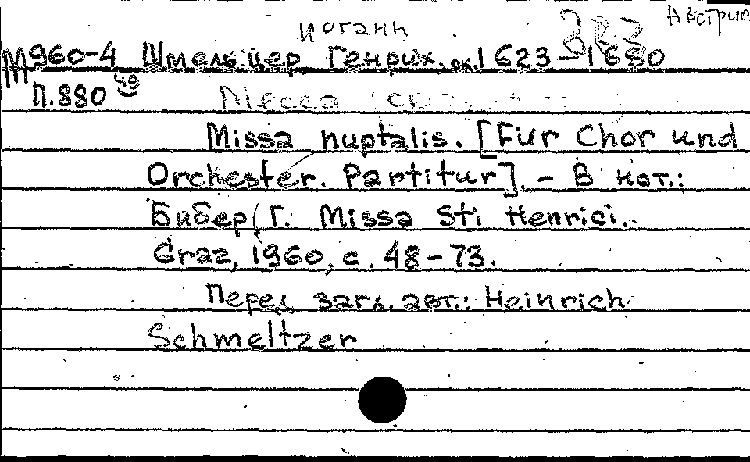 Иоганн Австрия
М960-4 Шмельцер Генрих. ок. 1623-1680
П.880 Месса
Missa nuptalis. [Für Chor und
Orchester. Partitur]. - В нот.:
Бибер Г. Missa Sti Henrici.
Graz, 1960, с. 48-73.
Перед загл. авт.: Heinrich
Schmeltzer